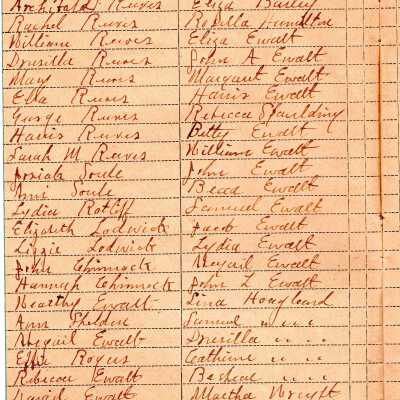 Archibald Reeves Eliza Barley
Rachel Reeves Rosilla Hamilton
William Reeves Eliza Ewalt
Drusilla Reeves John A Ewalt
Mary Reeves Margaret Ewalt
Ella Reeves Harris Ewalt
George Reeves Rebecca Spaulding
Harris Reeves Betty Ewalt
Sarah M Reeves William Ewalt
Josiah Soule John Ewalt
Ann Soule Ewalt
Lydia Ratliff Samuel Ewalt
Elizabeth Lodwick Jacob Ewalt
Lizzie Lodwick Lydia Ewalt
John Chinnock Abigail Ewalt
Hannah Chinnock John L Ewalt
Ewalt Lina Hoagland
Ann Sheldon Samuel " "
Abigail Ewalt Drusilla " "
Effie Rogers Catherine " "
Ewalt " "
Ewalt Martha Wright